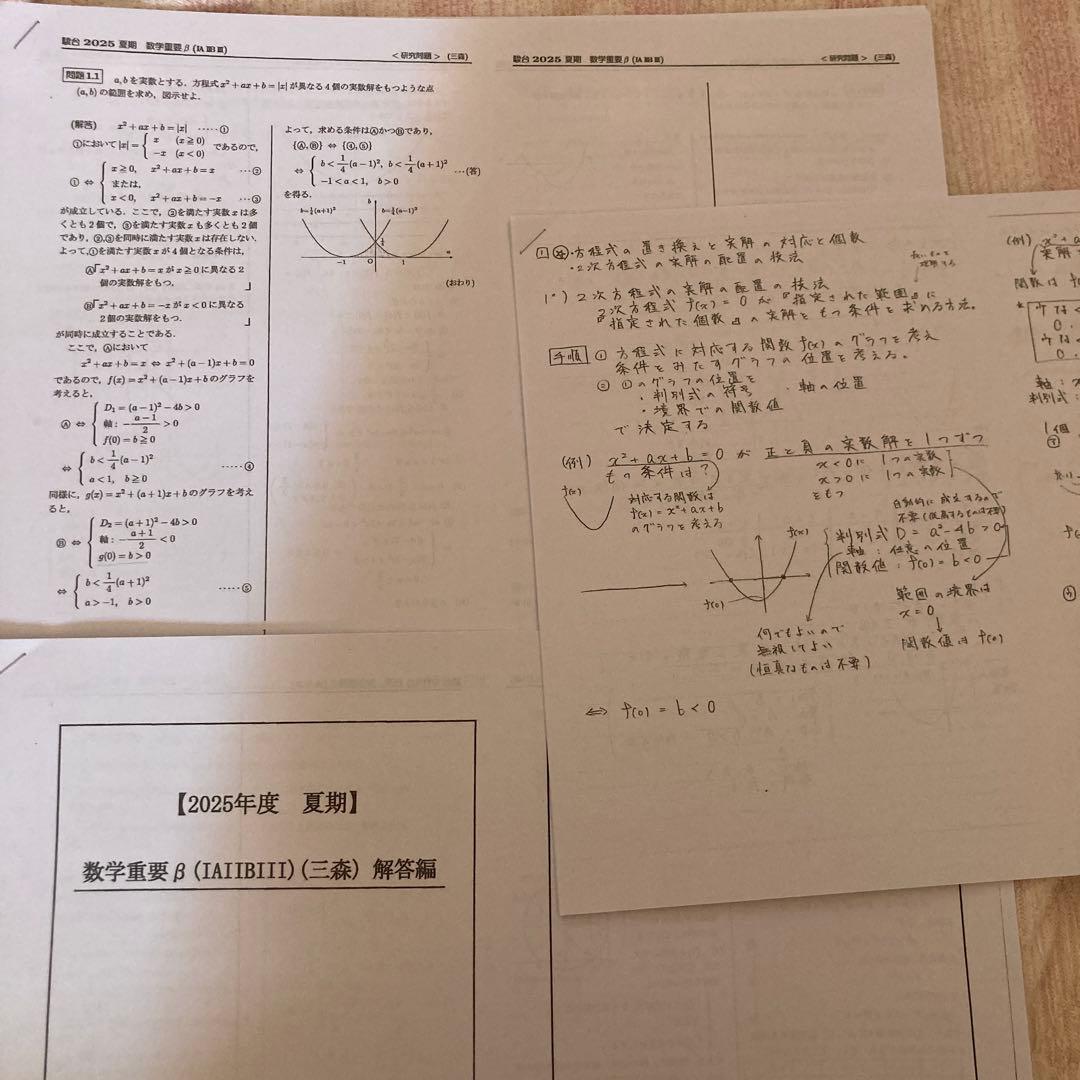 駿台 2025 夏期 数学重要β(IAⅡBⅢ)
<研究問題> (三森)
問題1.1 a,bを実数とする. 方程式x²+ax+b=|x|が異なる4個の実数解をもつような点
(a,b)の範囲を求め, 図示せよ.
(解答) x²+ax+b=|x| ‥‥‥①
①において|x|={ x (x≧0)
−x (x<0) であるので,
① ⇔ { x≧0, x²+ax+b=x ‥‥②
または,
x<0, x²+ax+b=−x ‥‥③
が成立している. ここで, ②を満たす実数xは多
くとも2個で, ③を満たす実数xも多くとも2個
であり, ②,③を同時に満たす実数xは存在しない.
よって,①を満たす実数xが4個となる条件は,
Ⓐ「x²+ax+b=xがx≧0に異なる2
個の実数解をもつ. 」
Ⓑ「x²+ax+b=−xがx<0に異なる
2個の実数解をもつ. 」
が同時に成立することである.
ここで, Ⓐにおいて
x²+ax+b=x ⇔ x²+(a−1)x+b=0
であるので, f(x)=x²+(a−1)x+bのグラフを
考えると,
Ⓐ ⇔ { D₁=(a−1)²−4b>0
軸:−(a−1)/2>0
f(0)=b≧0
⇔ { b<1/4(a−1)²
a<1, b≧0 ‥‥‥④
同様に, g(x)=x²+(a+1)x+bのグラフを考え
ると,
Ⓑ ⇔ { D₂=(a+1)²−4b>0
軸:−(a+1)/2<0
g(0)=b>0
⇔ { b<1/4(a+1)²
a>−1, b>0 ‥‥‥⑤
よって, 求める条件はⒶかつⒷであり,
{Ⓐ,Ⓑ} ⇔ {④,⑤}
⇔ { b<1/4(a−1)², b<1/4(a+1)²
−1<a<1, b>0 ‥‥(答)
を得る.
b=¼(a+1)² b b=¼(a−1)²
¼
−1 O 1 a
(おわり)
駿台 2025 夏期 数学重要β(IAⅡBⅢ)
<研究問題> (三森)
1 ・方程式の置き換えと実解の対応と個数
・2次方程式の実解の配置の技法
1°) 2次方程式の実解の配置の技法
2次方程式f(x)=0が『指定された範囲』に
『指定された個数』の実解をもつ条件を求める方法。
手順 ① 方程式に対応する関数f(x)のグラフを考え
条件をみたすグラフの位置を考える。
② ①のグラフの位置を
・判別式の符号 ・軸の位置
・境界での関数値
で決定する
(例) x²+ax+b=0 が 正と負の実数解を1つずつ
もつ条件は?
x<0に1つの実数
x>0に1つの実数
をもつ
f(x)
対応する関数は
f(x)=x²+ax+b
のグラフを考える
自動的に成立するので
f(x)
f(0)
判別式 D=a²−4b>0
軸:任意の位置
関数値:f(0)=b<0
何でもよいので
無視してよい
(恒真なものは不要)
範囲の境界は
x=0
関数値はf(0)
⇔ f(0)=b<0
(例)
実解
関数は
軸:
判別式:
1個
【2025年度 夏期】
数学重要β(IAIIBIII)(三森)解答編